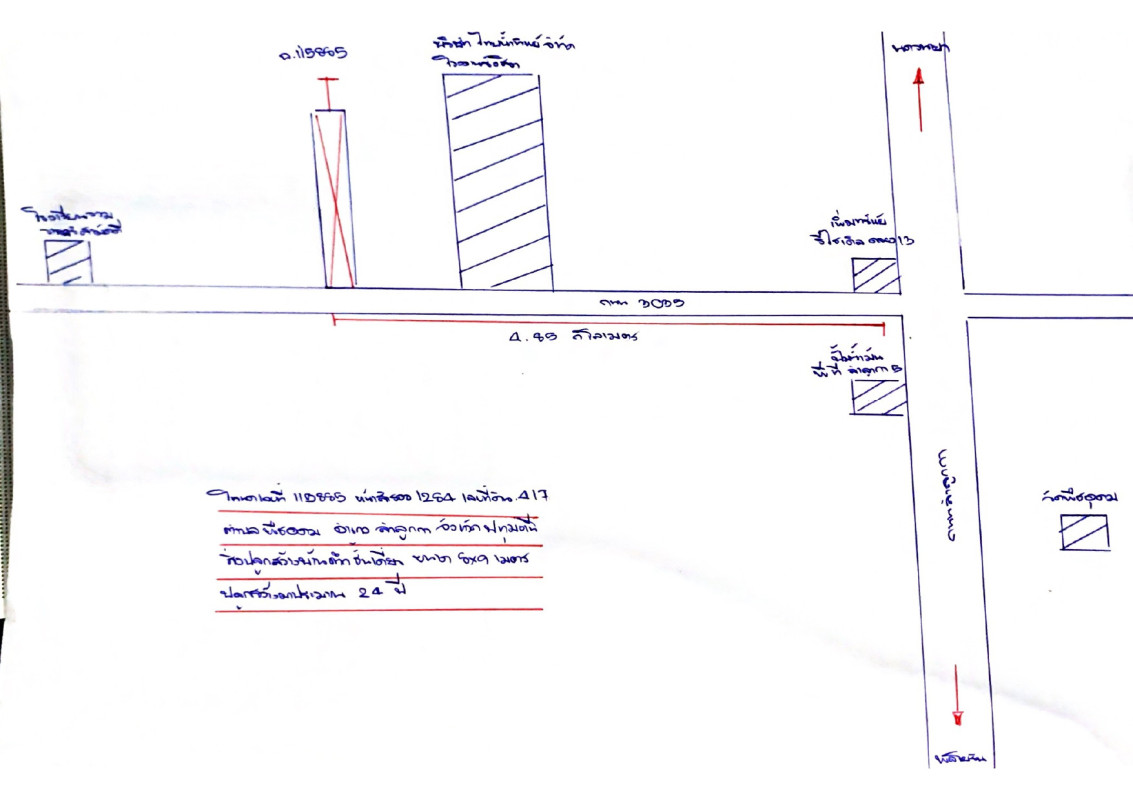 ฉ.115865
บริษัท ไทยน้ำทิพย์ จำกัด
นครนายก
โรงเรียนรวม
เพิ่มทรัพย์
13
ถนน 3035
4.85 กิโลเมตร
ปั๊มน้ำมัน
พีที ลำลูกกา 5
วัดพืชอุดม
โฉนดเลขที่ 115865 หน้าสำรวจ 1264 เลขที่ดิน 417
ตำบล พืชอุดม อำเภอ ลำลูกกา จังหวัด ปทุมธานี
สิ่งปลูกสร้างบ้านตึก ชั้นเดียว ขนาด 6x9 เมตร
ปลูกสร้างมาประมาณ 24 ปี